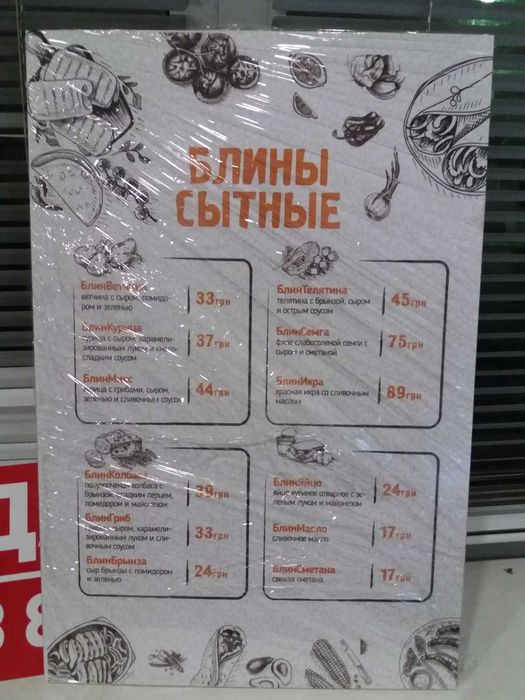 БЛИНЫ
СЫТНЫЕ
БлинВетчина
ветчина с сыром, помидо-
ром и зеленью
33грн
БлинКурица
курица с сыром, карамели-
зированным луком и кисло-
сладким соусом
37грн
БлинМикс
курица с грибами, сыром,
зеленью и сливочным соусом
44грн
БлинТелятина
телятина с брынзой, сыром
и острым соусом
45грн
БлинСемга
филе слабосоленой семги с
сыром и сметаной
75грн
БлинИкра
красная икра со сливочным
маслом
89грн
БлинКолбаса
полукопченая колбаса с
брынзой, сладким перцем,
помидором и майонезом
39грн
БлинГриб
грибы с сыром, карамели-
зированным луком и сли-
вочным соусом
33грн
БлинБрынза
сыр брынза с помидором
и зеленью
24грн
БлинЯйцо
яйцо куриное отварное с зе-
леным луком и майонезом
24грн
БлинМасло
сливочное масло
17грн
БлинСметана
свежая сметана
17грн